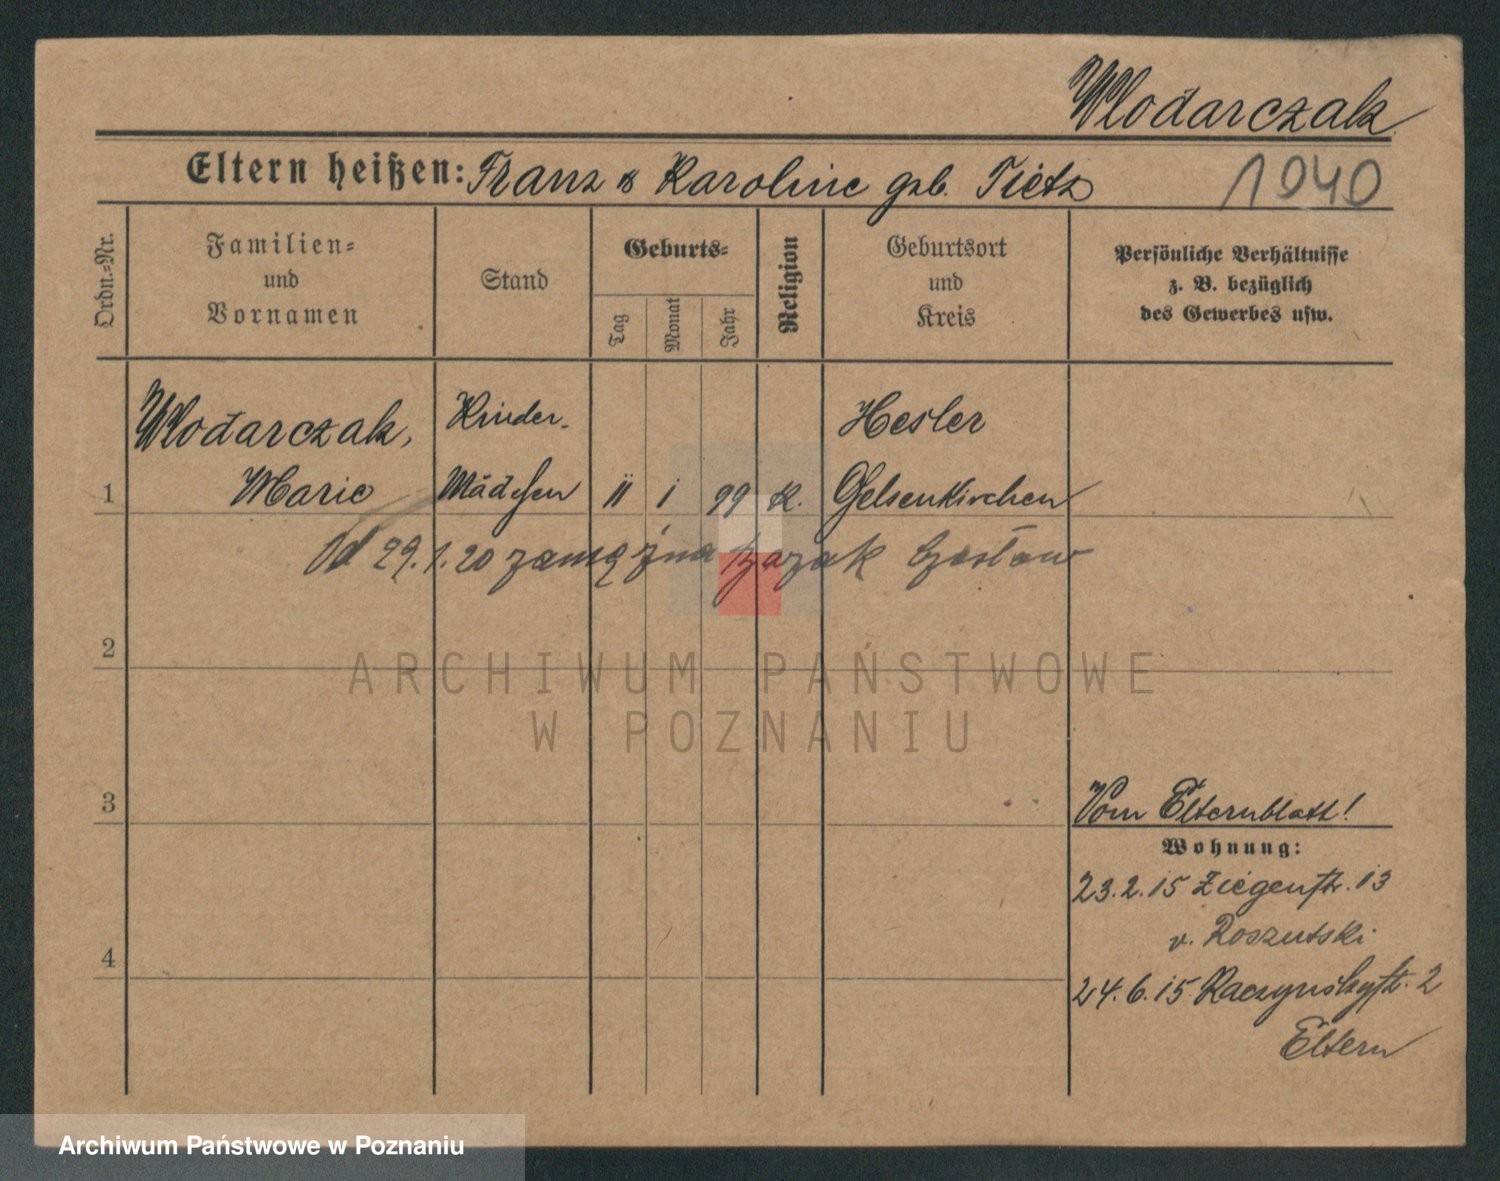 Wlodarczak
Eltern heißen: Franz & Karoline geb. Tietz
1940
Ordn.-Nr.
Familien-
und
Vornamen
Stand
Geburts-
Tag
Monat
Jahr
Religion
Geburtsort
und
Kreis
Persönliche Verhältnisse
z. B. bezüglich
des Gewerbes usw.
Wlodarczak, Kinder- Hesler
1 Marie Mädchen 11 1 99 K. Gelsenkirchen
Od 29.1.20 zamężna Czesław
2
ARCHIWUM PAŃSTWOWE
W POZNANIU
3
Vom Elternblatt!
Wohnung:
23.2.15 Ziegenstr. 13
v. Roszutski
4
24.6.15 Raczynskystr. 2
Eltern
Archiwum Państwowe w Poznaniu